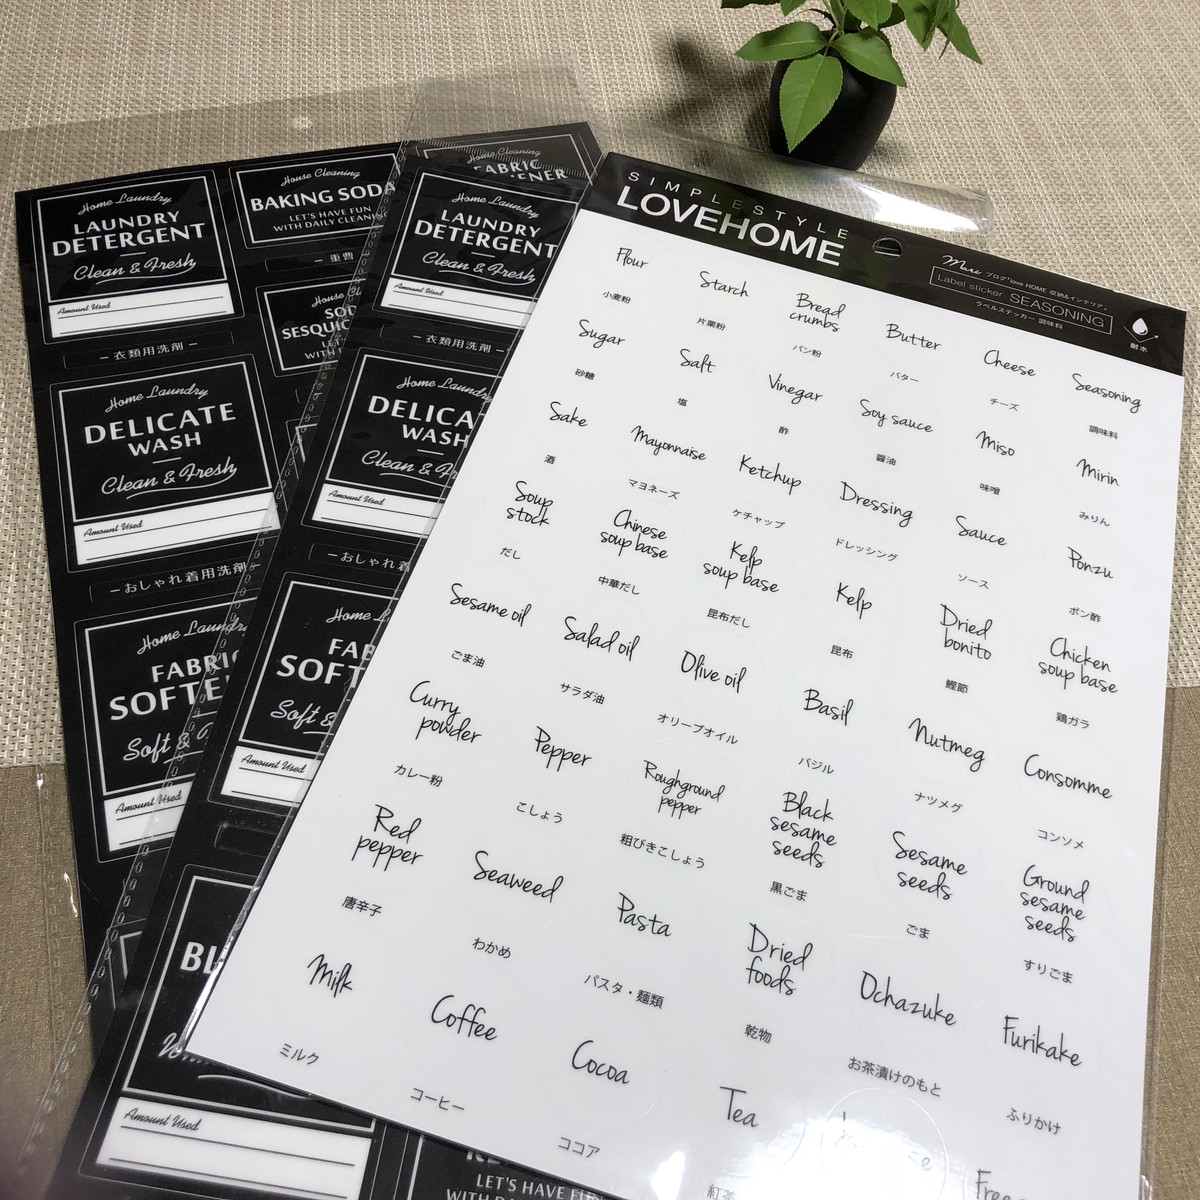 House Cleaning
FABRIC
Home Laundry
LAUNDRY
DETERGENT
Clean & Fresh
Amount Used
－衣類用洗剤－
House Cleaning
BAKING SODA
LET'S HAVE FUN
WITH DAILY CLEANING
－重曹
Home Laundry
DELICATE
WASH
Clean & Fresh
Amount Used
－おしゃれ着用洗剤
Home Laundry
Amount Used
Home Laundry
LAUNDRY
DETERGENT
Clean & Fresh
Amount Used
－衣類用洗剤－
Home Laundry
WASH
Amount Used
－おしゃれ着
Amount Used
Amount Used
LET'S HAVE FUN
SIMPLESTYLE
LOVEHOME
Mari ブログ「love HOME 収納&インテリア」
Label sticker SEASONING
ラベルステッカー 調味料
耐水
Flour
小麦粉
Starch
片栗粉
Bread
crumbs
パン粉
Butter
バター
Cheese
チーズ
Seasoning
調味料
Sugar
砂糖
Salt
塩
Vinegar
酢
Soy sauce
醤油
Miso
味噌
Mirin
みりん
Sake
酒
Mayonnaise
マヨネーズ
Ketchup
ケチャップ
Dressing
ドレッシング
Sauce
ソース
Ponzu
ポン酢
Soup
stock
だし
Chinese
soup base
中華だし
Kelp
soup base
昆布だし
Kelp
昆布
Dried
bonito
鰹節
Chicken
soup base
鶏ガラ
Sesame oil
ごま油
Salad oil
サラダ油
Olive oil
オリーブオイル
Basil
バジル
Nutmeg
ナツメグ
Consomme
コンソメ
Curry
powder
カレー粉
Pepper
こしょう
Roughground
pepper
粗びきこしょう
Black
sesame
seeds
黒ごま
Sesame
seeds
ごま
Ground
sesame
seeds
すりごま
Red
pepper
唐辛子
Seaweed
わかめ
Pasta
パスタ・麺類
Dried
foods
乾物
Ochazuke
お茶漬けのもと
Furikake
ふりかけ
Milk
ミルク
Coffee
コーヒー
Cocoa
ココア
Tea
紅茶